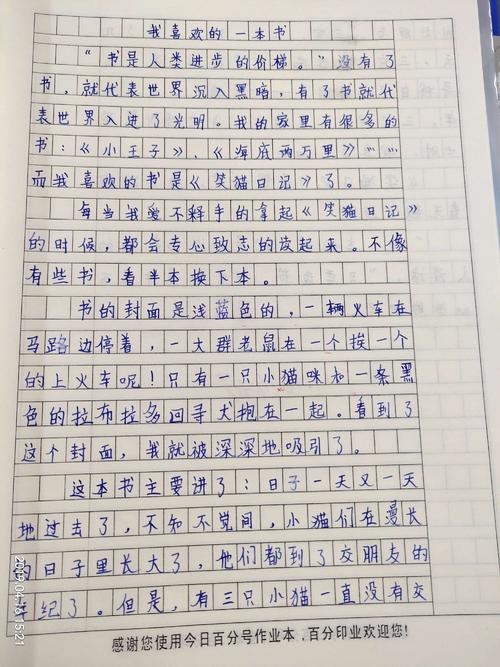 我喜欢的一本书
“书是人类进步的价梯。”没有了
书,就代表世界沉入黑暗,有了书就代
表世界入进了光明。我的家里有很多的
书:《小王子》、《海底两万里》……
而我喜欢的书是《笑猫日记》了。
每当我爱不释手的拿起《笑猫日记》
的时候,都会专心致志的读起来。不像
有些书,看半本换下本。
书的封面是浅蓝色的,一辆火车在
马路边停着,一大群老鼠在一个挨一个
的上火车呢!只有一只小猫咪和一条黑
色的拉布拉多回寻犬抱在一起。看到了
这个封面,我就被深深地吸引了。
这本书主要进了:日子一天又一天
地过去了,不知不觉间,小猫们在漫长
的日子里长大了,他们都到了交朋友的
纪了。但是,有三只小猫一直没有交
感谢您使用今日百分号作业本,百分印业欢迎您!
15:21